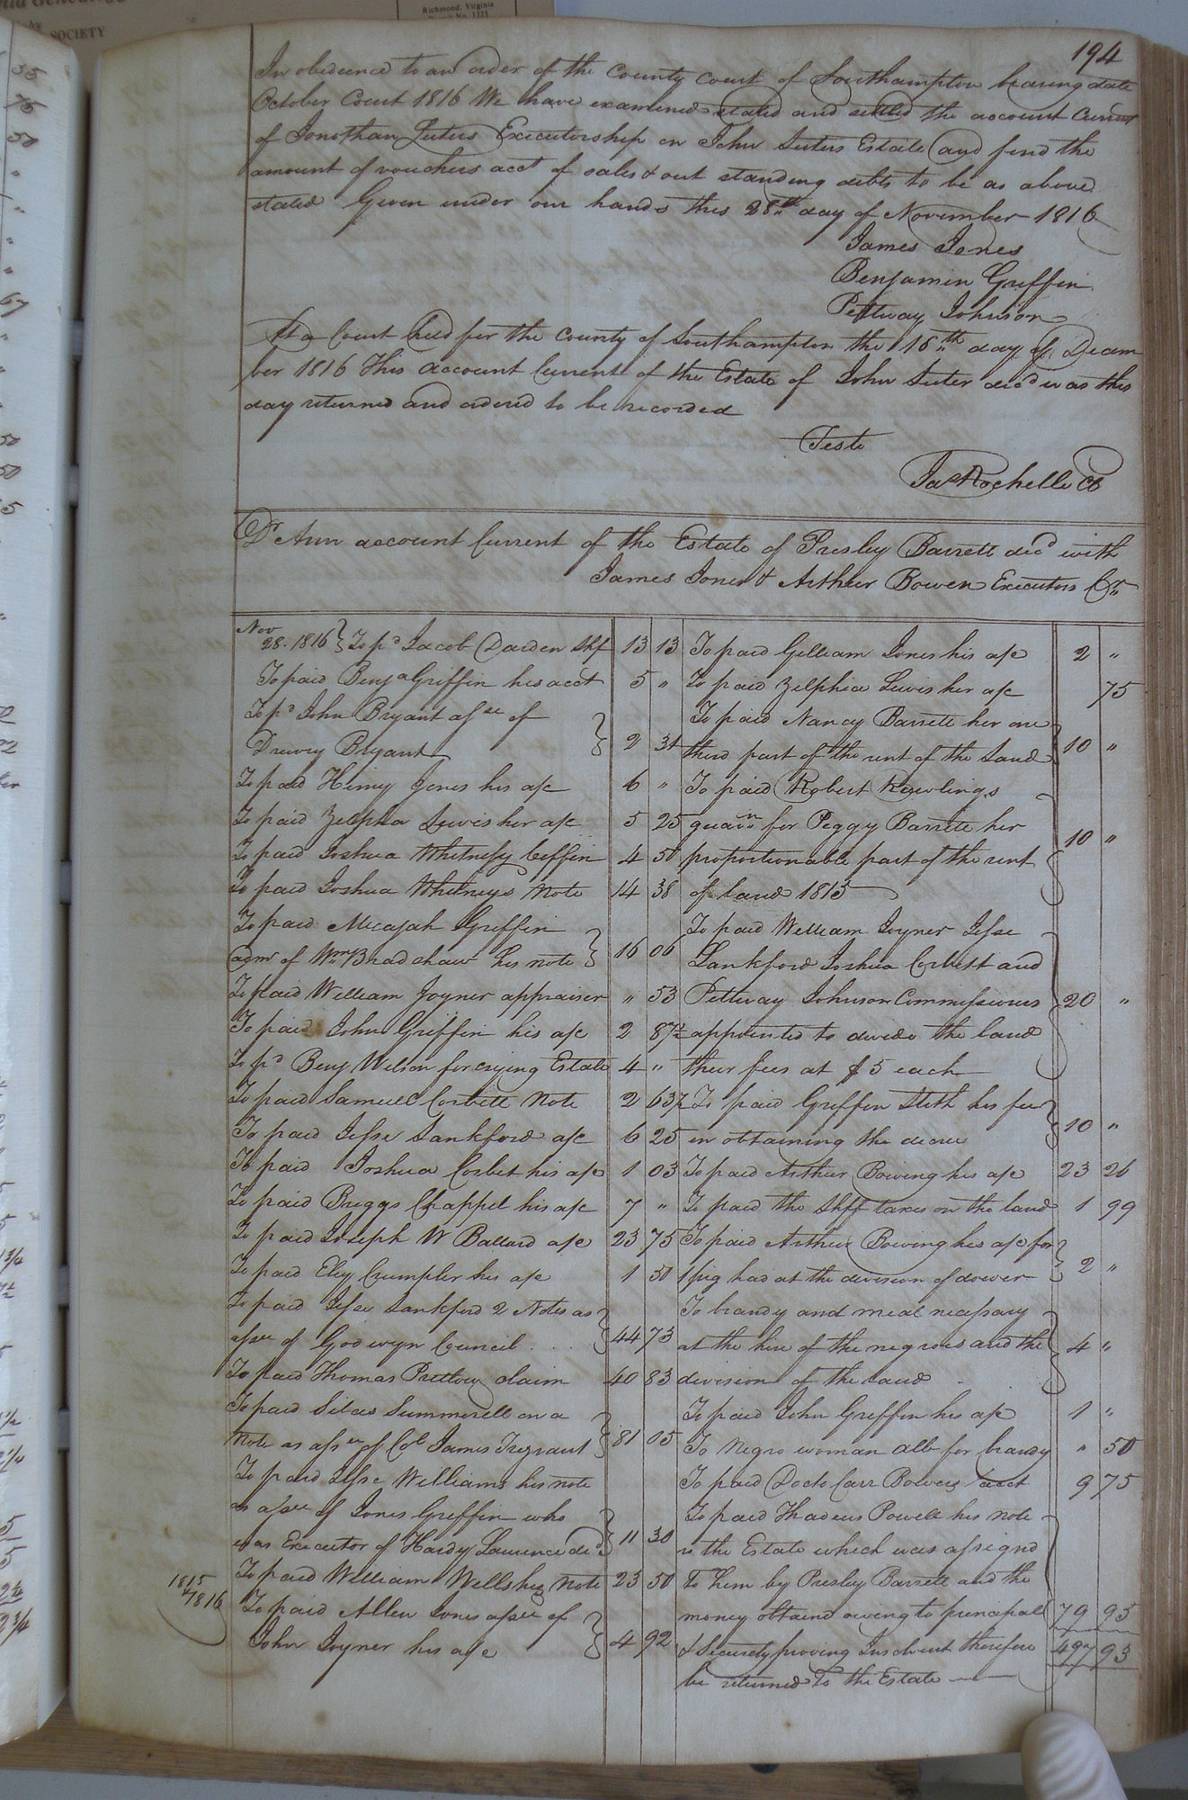 Richmond, Virginia
SOCIETY
194
In obedience to an order of the County Court of Southampton bearing date
October Court 1816 We have examined stated and settled the account Current
of Jonathan Suters Executorship on John Suters Estate and find the
amount of vouchers acct of sales & out standing debts to be as above
stated Given under our hands this 28th day of November 1816
James Jones
Benjamin Griffin
Pettway Johnson
At a Court held for the County of Southampton the 16th day of Decem
ber 1816 This Account Current of the Estate of John Suter decd was this
day returned and ordered to be recorded
Teste
Jas Rochelle Cl
Dr Ann account Current of the Estate of Presley Barrett decd with
James Jones & Arthur Bowen Executors Cr
Nov
28. 1816 To pd Jacob Darden Shf 13 13
To paid Benja Griffin his acct 5 "
To pd John Bryant assee of
Drewry Bryant 2 31
To paid Henry Jones his a/c 6 "
To paid Zelpha Lewis her a/c 5 25
To paid Joshua Whitney Coffin 4 50
To paid Joshua Whitneys Note 14 38
To paid Micajah Griffin
admr of Wm Bradshaw his note 16 06
To paid William Joyner appraiser " 53
To paid John Griffin his a/c 2 87½
To pd Benj Wilson for crying Estate 4 "
To paid Samuel Corbett Note 2 63½
To paid Jesse Lankford a/c 6 25
To paid Joshua Corbet his a/c 1 03
To paid Briggs Chappel his a/c 7 "
To paid Joseph W Ballard a/c 23 75
To paid Eley Crumpler his a/c 1 50
To paid Jesse Lankford 2 Notes as
assee of Godwyn Council . . . 44 73
To paid Thomas Pretlow claim 40 83
To paid Silas Summerell on a
Note as assee of Col James Trezvant 81 05
To paid Jesse Williams his note
as assee of Jones Griffin who
was Executor of Hardy Lawrence decd 11 30
To paid William Wells his Note 23 50
1815
& 1816 To paid Allen Jones assee of
John Joyner his a/c 4 92
To paid Gilliam Jones his a/c 2 "
To paid Zelphia Lewis her a/c 75
To paid Nancy Barrett her one
third part of the rent of the Land 10 "
To paid Robert Rawlings
guardn for Peggy Barrett her
proportionable part of the rent 10 "
of land 1815
To paid William Joyner Jesse
Lankford Joshua Corbett and
Pettway Johnson Commissioners 20 "
appointed to devide the land
their fees at $5 each
To paid Griffin Stith his fee
in obtaining the decree 10 "
To paid Arthur Bowing his a/c 23 26
To paid the Shff taxes on the land 1 99
To paid Arthur Bowing his a/c for
1 pig had at the division of dower 2 "
To brandy and meal necessary
at the hire of the negroes and the 4 "
division of the land
To paid John Griffin his a/c 1 "
To Negro woman Alb for brandy " 50
To paid Docto Carr Bowers acct 9 75
To paid Thadeus Powell his note
to the Estate which was assignd
to him by Presley Barrett and the
money obtaind owing to principal 79 95
& Security proving Insolvent therefore 497 93
be returned to the Estate